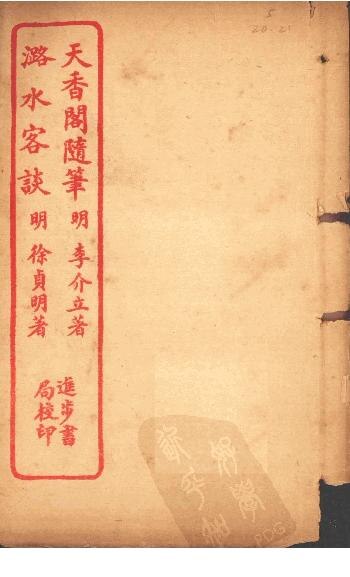 天香閣隨筆 明 李介立著
潞水客談 明 徐貞明著
進步書
局校印
5
20-21
PDG